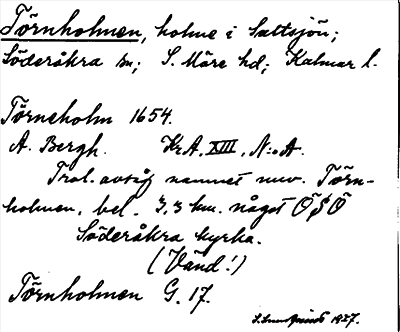 Törnholmen, holme i Saltsjön;
Söderåkra sn; S. Möre hd; Kalmar l.
Törneholm 1654.
A. Bergh. KrA, XIII, N:o A.
Trol. avsåg namnet nuv. Törn-
holmen, bel. 3,3 km. något Ö S Ö
Söderåkra kyrka.
(Vänd!)
Törnholmen G. 17.
1927.